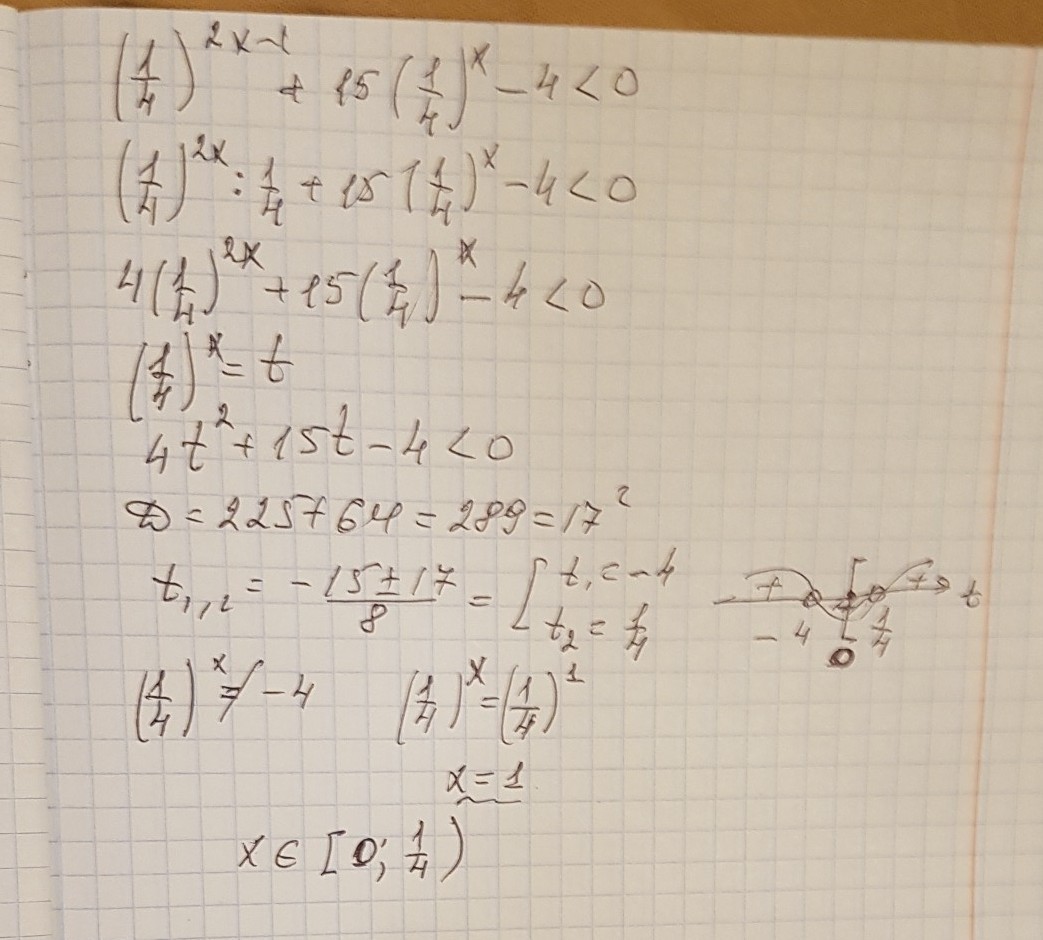 (1/4)^(2x-1) + 15(1/4)^x - 4 < 0
(1/4)^(2x) : 1/4 + 15(1/4)^x - 4 < 0
4(1/4)^(2x) + 15(1/4)^x - 4 < 0
(1/4)^x = t
4t² + 15t - 4 < 0
D = 225 + 64 = 289 = 17²
t₁,₂ = (-15 ± 17)/8 = [ t₁ = -4
t₂ = 1/4
+ - + t
-4 0 1/4
(1/4)^x ≠ -4 (1/4)^x = (1/4)^1
x = 1
x ∈ [0; 1/4)